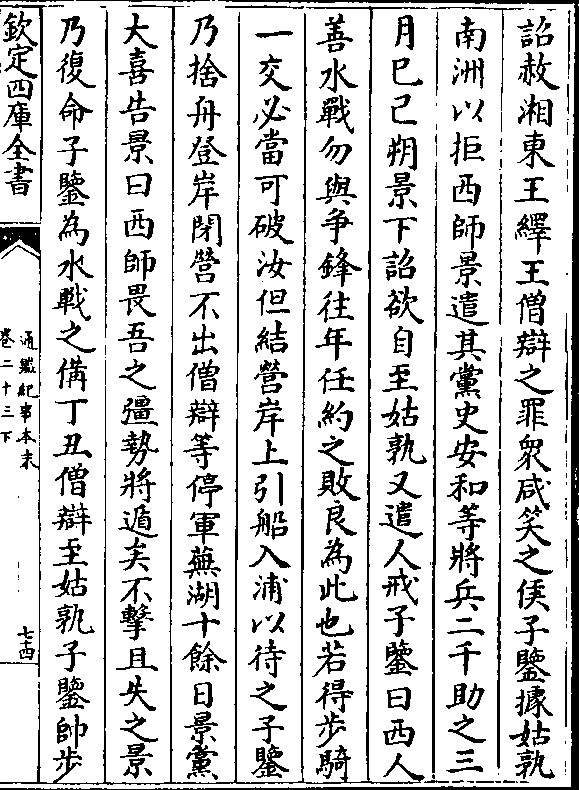 詔赦湘東王繹王僧辯之罪衆咸笑之侯子鑒據姑孰
南洲以拒西師景遣其黨史安和等將兵二千助之三
月己巳朔景下詔欲自至姑孰又遣人戒子鑒曰西人
善水戰勿與爭鋒往年任約之敗良為此也若得步騎
一交必當可破汝但結營岸上引船入浦以待之子鑒
乃捨舟登岸閉營不出僧辯等停軍蕪湖十餘日景黨
大喜告景曰西師畏吾之彊勢將遁矣不擊且失之景
乃復命子鑒為水戰之備丁丑僧辯至姑孰子鑒帥步
欽定四庫全書
通鑑紀事本末
卷二十三下
七四